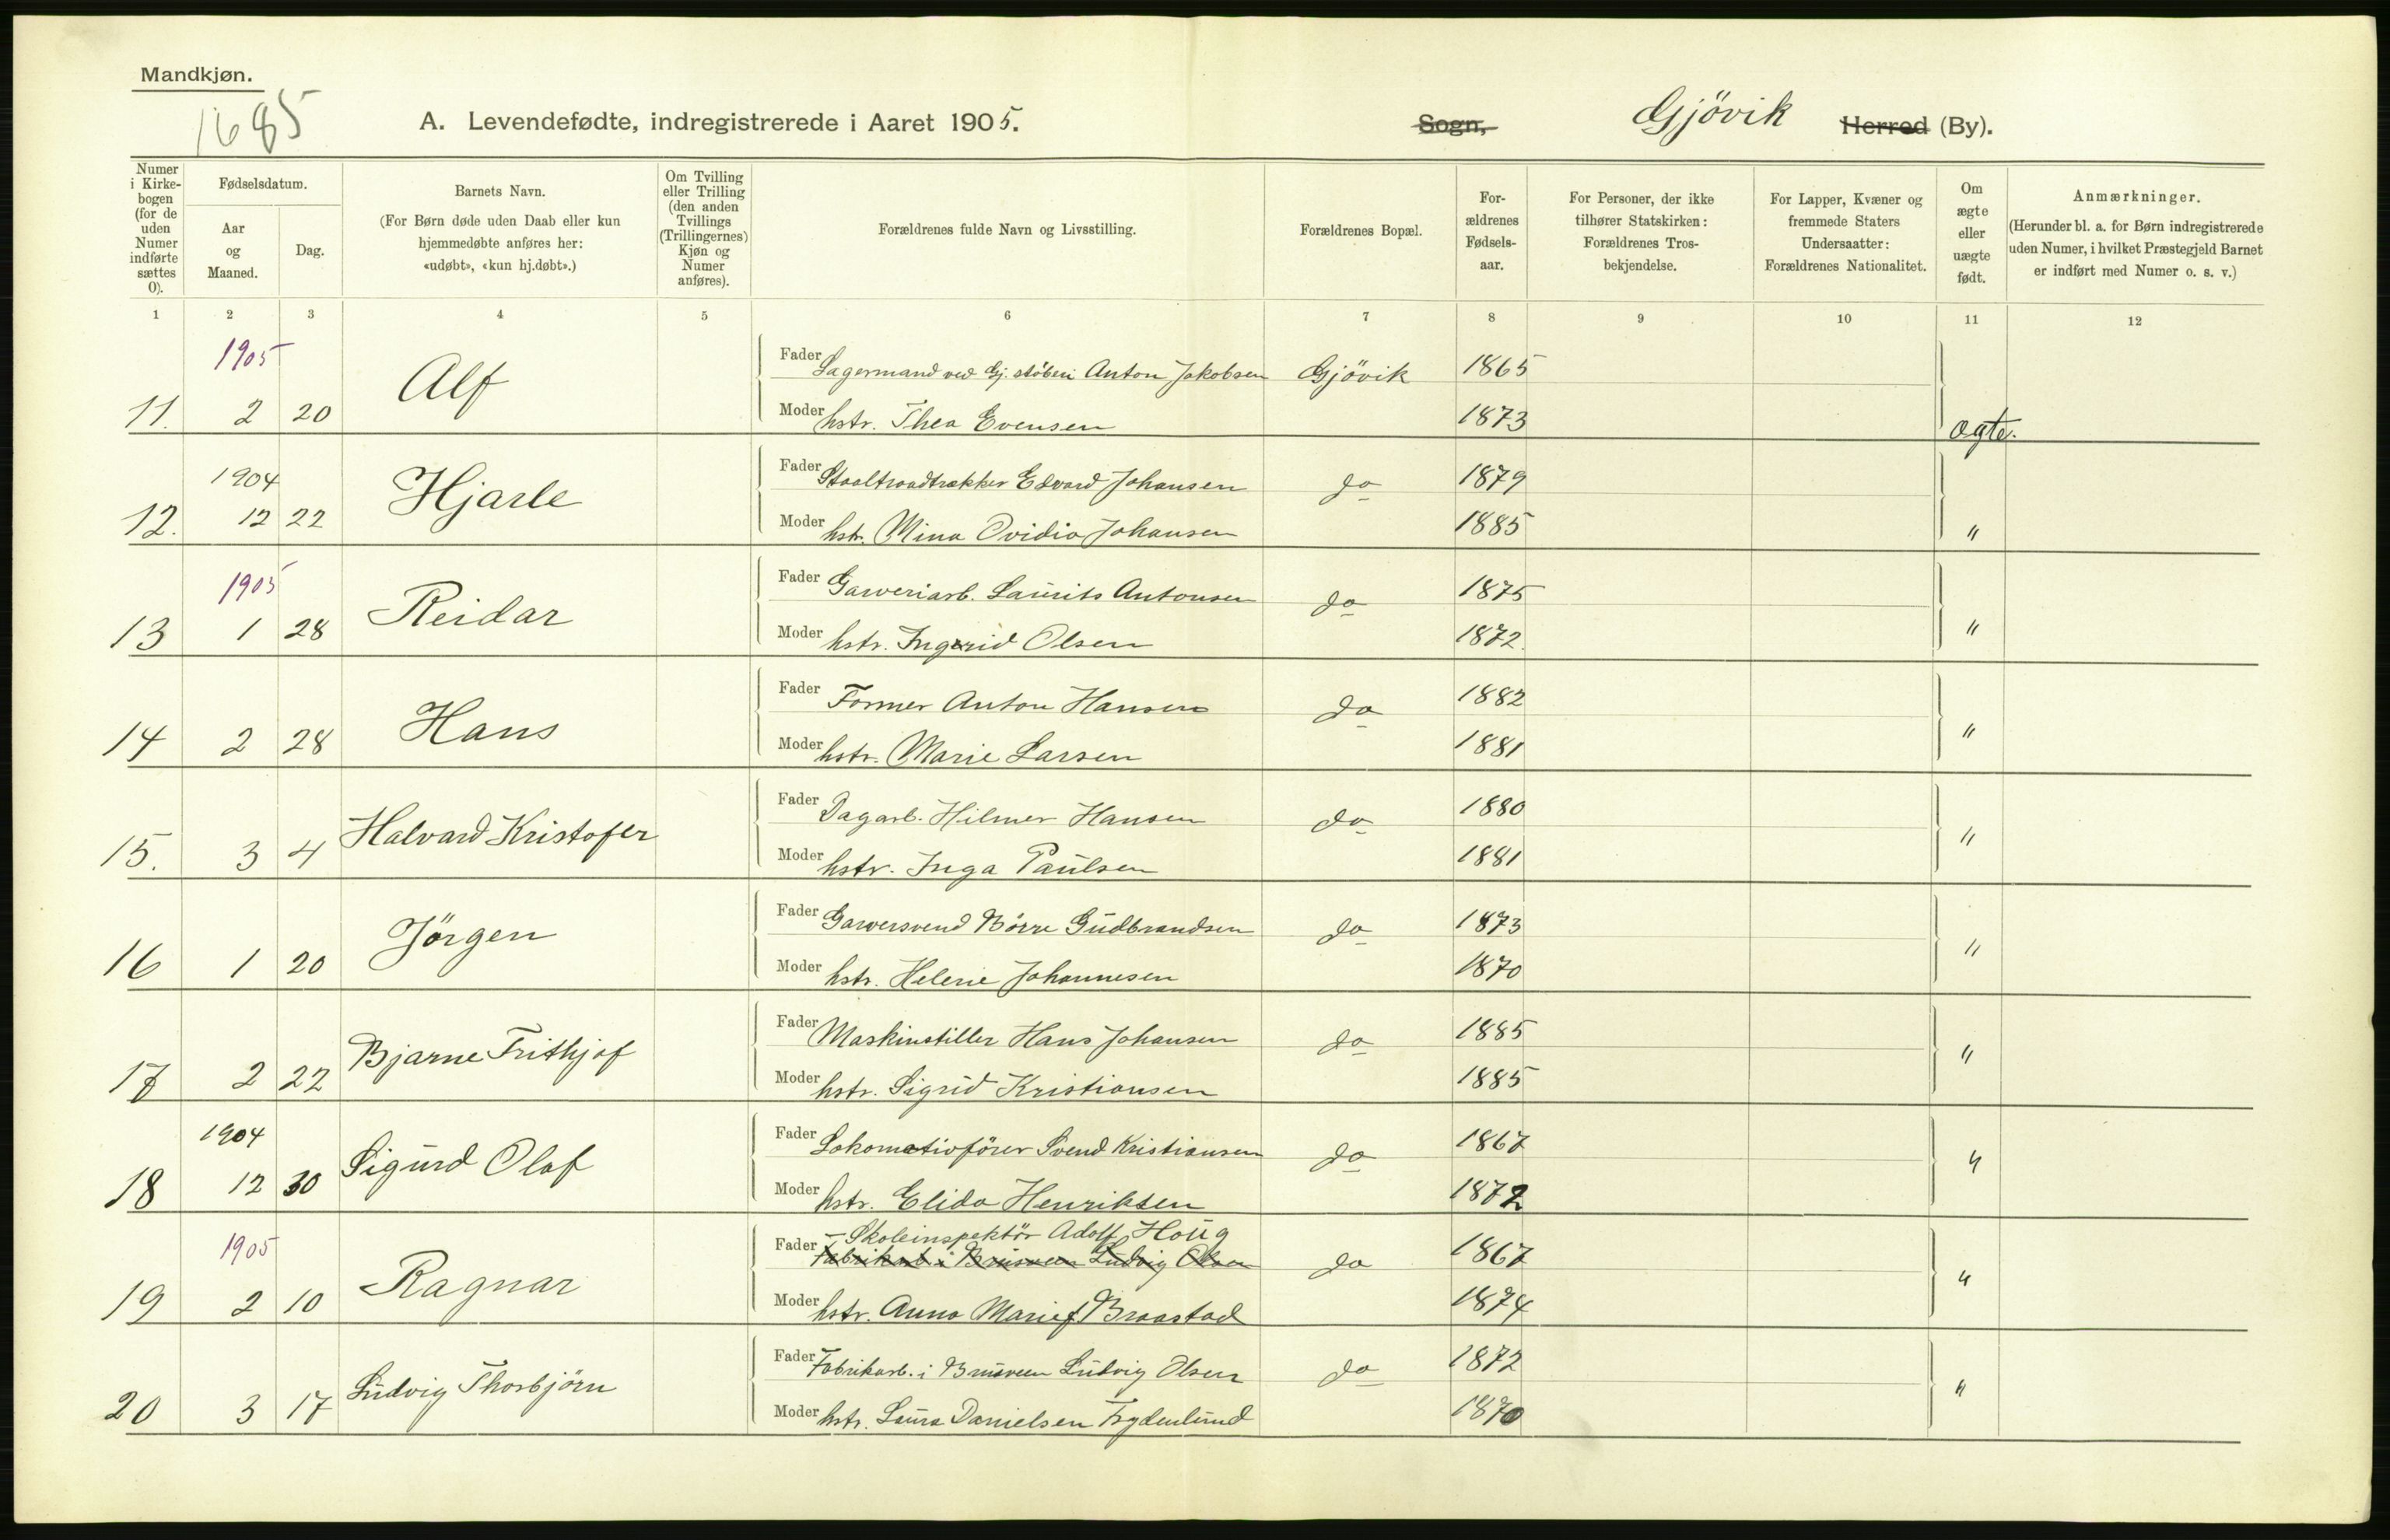 Mandkjøn.
1685
A. Levendefødte, indregistrerede i Aaret 1905.
Sogn, Gjövik Herred (By).
Numer i Kirkebogen (for de uden Numer indførte sættes 0).
Fødselsdatum.
Aar og Maaned.
Dag.
Barnets Navn.
(For Børn døde uden Daab eller kun hjemmedøbte anføres her: «udøbt», «kun hj.døbt».)
Om Tvilling eller Trilling (den anden Tvillings (Trillingernes) Kjøn og Numer anføres).
Forældrenes fulde Navn og Livsstilling.
Forældrenes Bopæl.
Forældrenes Fødselsaar.
For Personer, der ikke tilhører Statskirken: Forældrenes Trosbekjendelse.
For Lapper, Kvæner og fremmede Staters Undersaatter: Forældrenes Nationalitet.
Om ægte eller uægte født.
Anmærkninger.
(Herunder bl. a. for Børn indregistrerede uden Numer, i hvilket Præstegjeld Barnet er indført med Numer o. s. v.)
1 2 3 4 5 6 7 8 9 10 11 12
1905
Fader Lagermand ved Gj. støberi Anton Jakobsen Gjövik 1865
11. 2 20 Alf
Moder hstr. Thea Evensen 1873 ægte.
1904
Fader Staaltraadtrækker Edvard Johansen do 1879
12. 12 22 Hjarle
Moder hstr. Mina Ovidia Johansen 1885 "
1905
Fader Garveriarb. Laurits Antonsen do 1875
13 1 28 Reidar
Moder hstr. Ingerid Olsen 1872. "
Fader Former Anton Hansen do 1882
14 2 28 Hans
Moder hstr. Marie Larsen 1881 "
Fader Dagarb. Hilmer Hansen do 1880
15. 3 4 Halvard Kristofer
Moder hstr. Inga Paulsen 1881 "
Fader Garversvend Börre Gudbrandsen do 1873
16 1 20 Jörgen
Moder hstr. Helene Johannesen 1870 "
Fader Maskinstiller Hans Johansen do 1885
17 2 22 Bjarne Frithjof
Moder hstr. Sigrid Kristiansen 1885 "
1904
Fader Lokomotivförer Svend Kristiansen do 1867
18 12 30 Sigurd Olaf
Moder hstr. Elida Henriksen 1872 "
1905
Skoleinspektör Adolf Houg
Fader Fabrikarb. i Brusveen Ludvig Olsen do 1867
19 2 10 Ragnar
Moder hstr. Anna Marie Braastad 1874 "
Fader Fabrikarb. i Brusveen Ludvig Olsen do 1872
20 3 17 Ludvig Thorbjörn
Moder hstr. Laura Danielsen Frydenlund 1870 "